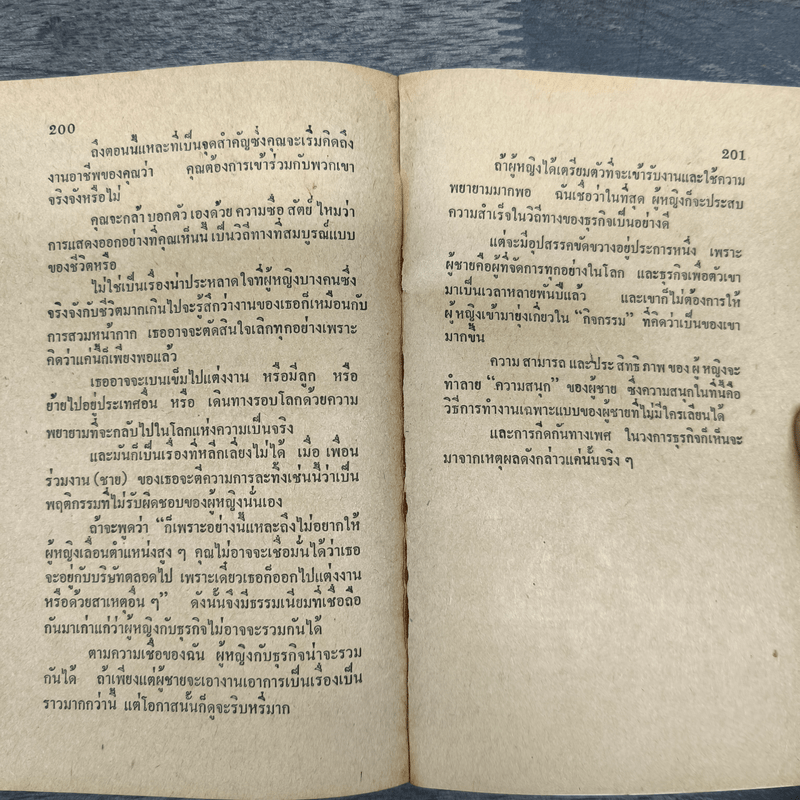 200
ถึงตอนนี้แหละที่เป็นจุดสำคัญซึ่งคุณจะเริ่มคิดถึง
งานอาชีพของคุณว่า คุณต้องการเข้าร่วมกับพวกเขา
จริงจังหรือไม่
คุณจะกล้า บอกตัว เองด้วย ความซื่อ สัตย์ ไหมว่า
การแสดงออกอย่างที่คุณเห็นนี้ เป็นวิถีทางที่สมบูรณ์แบบ
ของชีวิตหรือ
ไม่ใช่เป็นเรื่องน่าประหลาดใจที่ผู้หญิงบางคนซึ่ง
จริงจังกับชีวิตมากเกินไปจะรู้สึกว่างานของเธอก็เหมือนกับ
การสวมหน้ากาก เธออาจจะตัดสินใจเลิกทุกอย่างเพราะ
คิดว่าแค่นี้ก็เพียงพอแล้ว
เธออาจจะเบนเข็มไปแต่งงาน หรือมีลูก หรือ
ย้ายไปอยู่ประเทศอื่น หรือ เดินทางรอบโลกด้วยความ
พยายามที่จะกลับไปในโลกแห่งความเป็นจริง
และมันก็เป็นเรื่องที่หลีกเลี่ยงไม่ได้ เมื่อ เพื่อน
ร่วมงาน (ชาย) ของเธอจะตีความการละทิ้งเช่นนี้ว่าเป็น
พฤติกรรมที่ไม่รับผิดชอบของผู้หญิงนั่นเอง
ถ้าจะพูดว่า “ก็เพราะอย่างนี้แหละถึงไม่อยากให้
ผู้หญิงเลื่อนตำแหน่งสูง ๆ คุณไม่อาจจะเชื่อมั่นได้ว่าเธอ
จะอยู่กับบริษัทตลอดไป เพราะเดี๋ยวเธอก็ออกไปแต่งงาน
หรือด้วยสาเหตุอื่น ๆ” ดังนั้นจึงมีธรรมเนียมที่เชื่อถือ
กันมาเก่าแก่ว่าผู้หญิงกับธุรกิจไม่อาจจะรวมกันได้
ตามความเชื่อของฉัน ผู้หญิงกับธุรกิจน่าจะรวม
กันได้ ถ้าเพียงแต่ผู้ชายจะเอางานเอาการเป็นเรื่องเป็น
ราวมากกว่านี้ แต่โอกาสนั้นก็ดูจะริบหรี่มาก
201
ถ้าผู้หญิงได้เตรียมตัวที่จะเข้ารับงานและใช้ความ
พยายามมากพอ ฉันเชื่อว่าในที่สุด ผู้หญิงก็จะประสบ
ความสำเร็จในวิถีทางของธุรกิจเป็นอย่างดี
แต่จะมีอุปสรรคขัดขวางอยู่ประการหนึ่ง เพราะ
ผู้ชายคือผู้ที่จัดการทุกอย่างในโลก และธุรกิจเพื่อตัวเขา
มาเป็นเวลาหลายพันปีแล้ว และเขาก็ไม่ต้องการให้
ผู้หญิงเข้ามายุ่งเกี่ยวใน “กิจกรรม” ที่คิดว่าเป็นของเขา
มากขึ้น
ความ สามารถ และประ สิทธิ ภาพ ของ ผู้ หญิงจะ
ทำลาย “ความสนุก” ของผู้ชาย ซึ่งความสนุกในที่นี้คือ
วิธีการทำงานเฉพาะแบบของผู้ชายที่ไม่มีใครเลียนได้
และการกีดกันทางเพศ ในวงการธุรกิจก็เห็นจะ
มาจากเหตุผลดังกล่าวแค่นั้นจริง ๆ